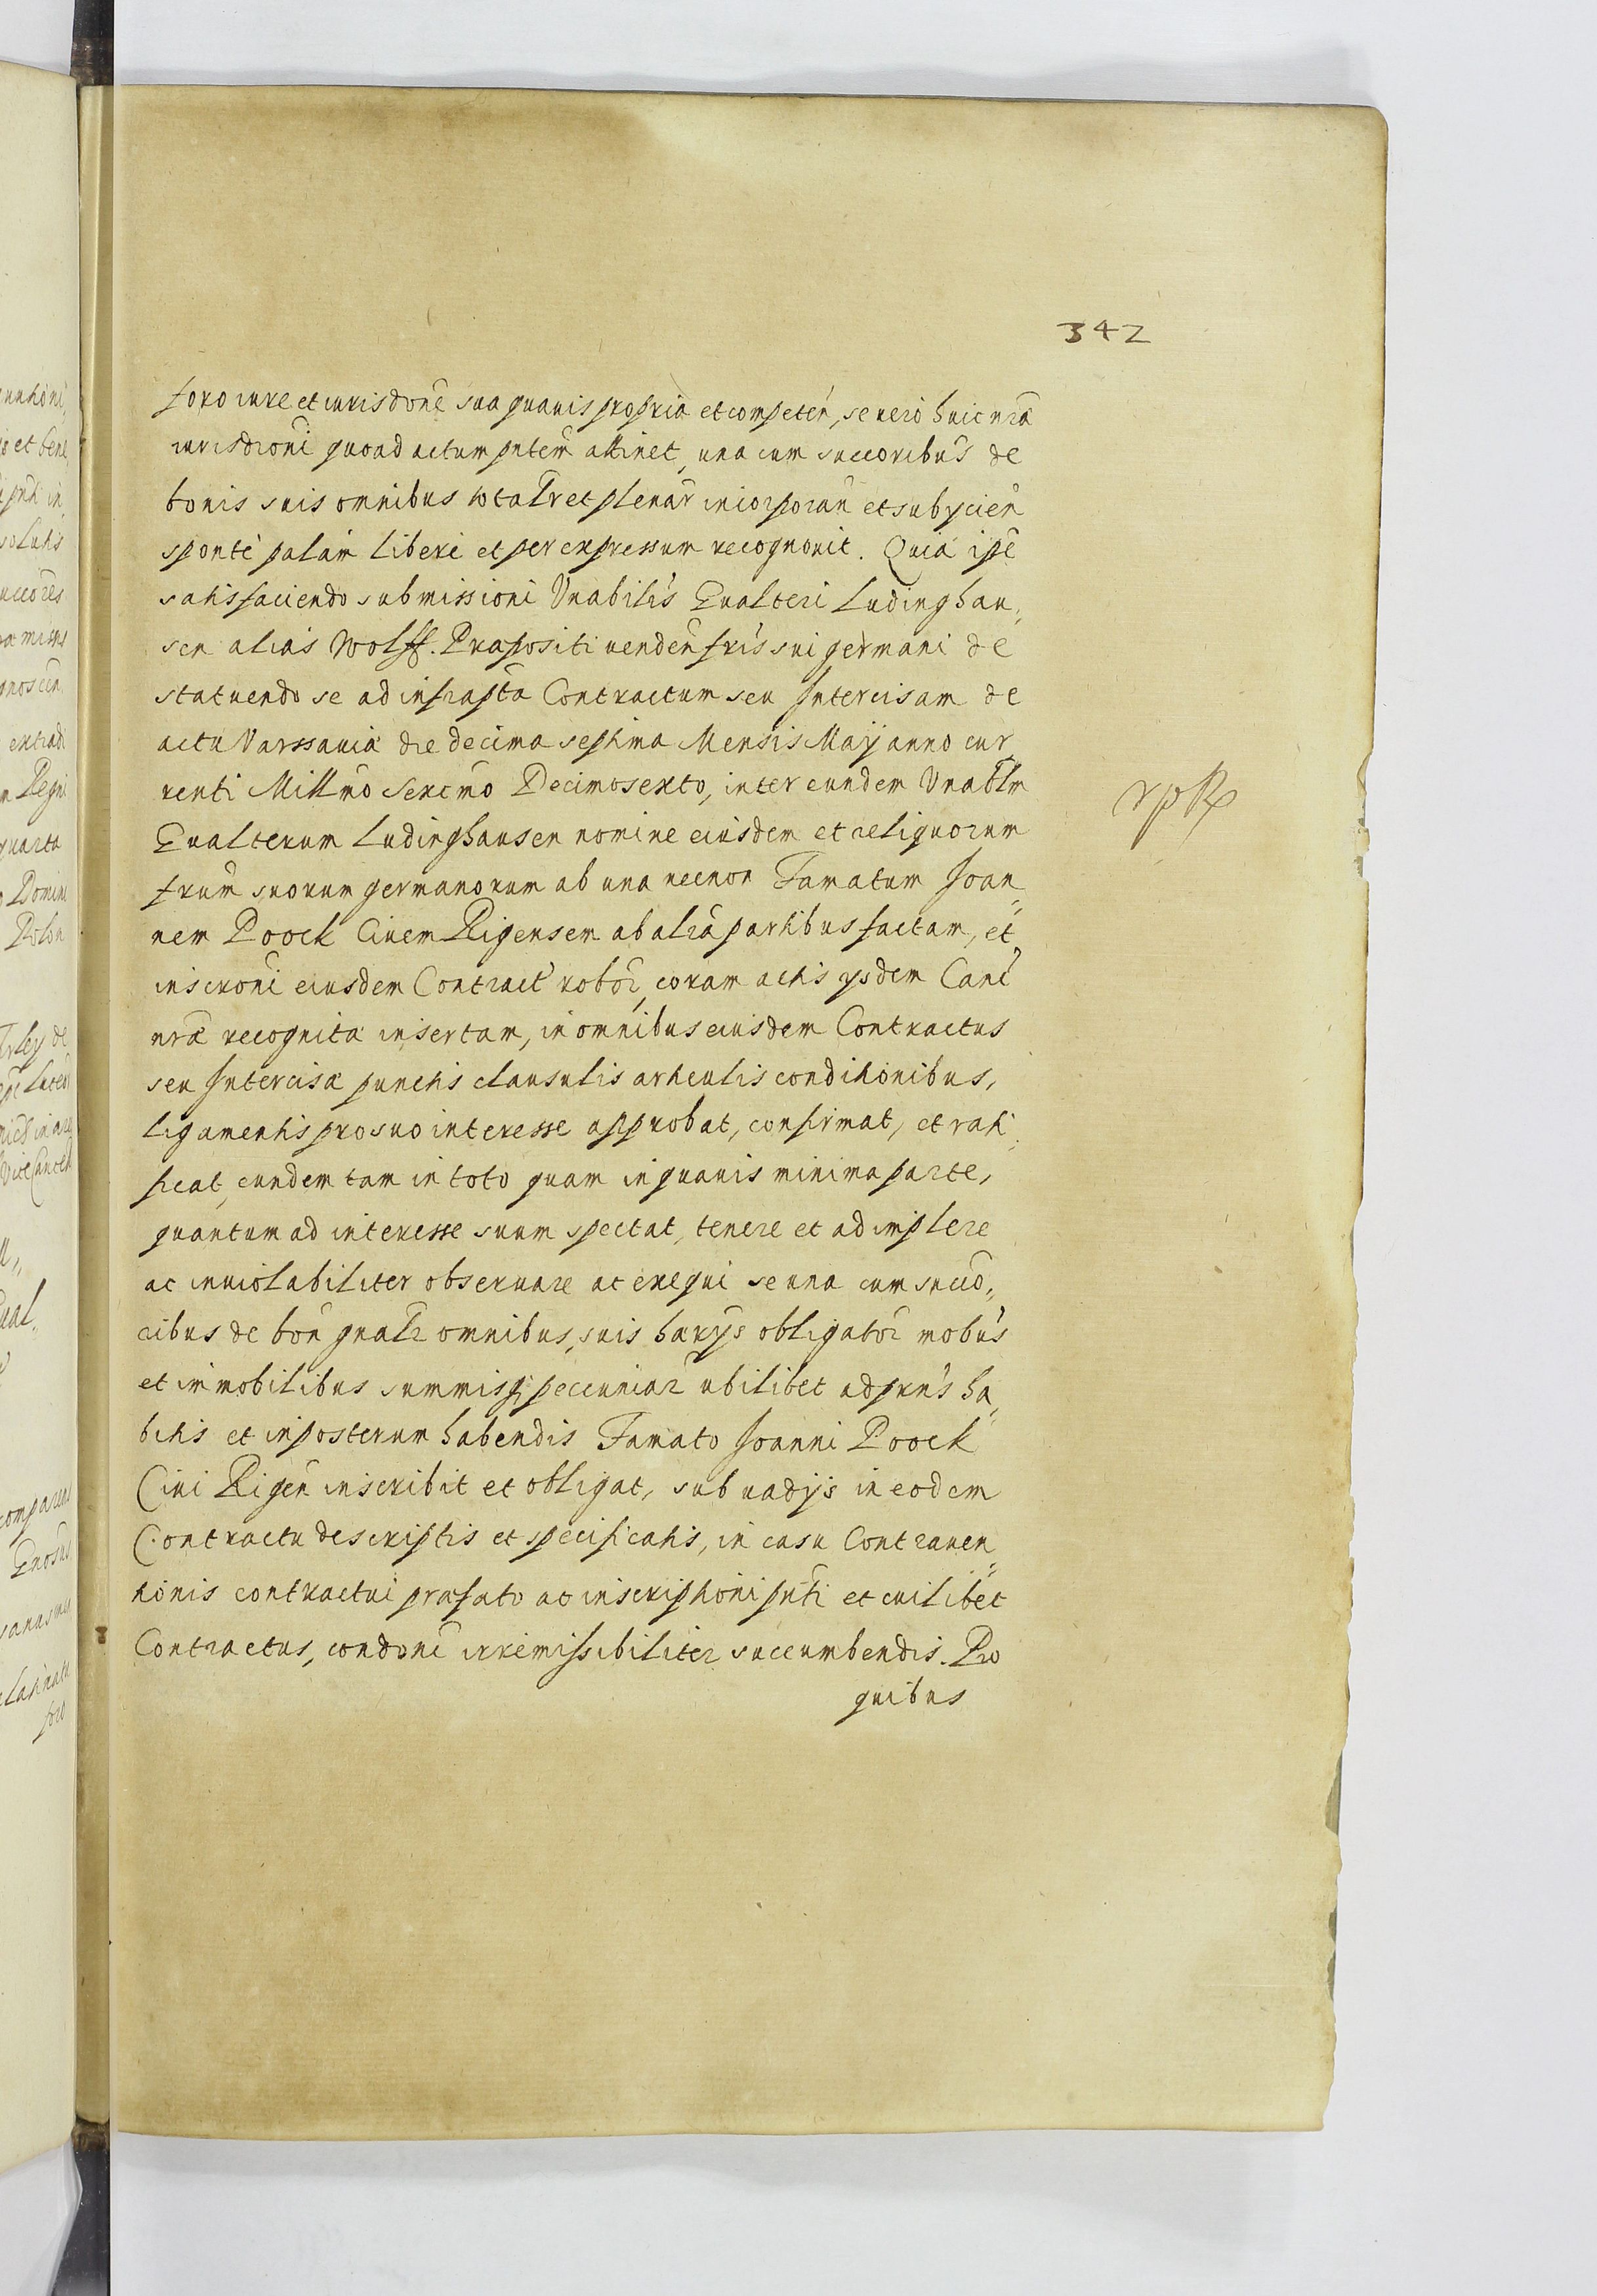 342
foro iure et iurisdone sua quauis propria et competen, se uero huic nra
iurisdioni quoad actum pntem attinet, una cum succoribus de
bonis suis omnibus totalr et plenar incorporan et subycien
sponte palam libere et per expressum recognouit. Quia ipe
satisfaciendo submissioni Vnabilis Eualteri Ludinghau,
sen alias Wolff. Præpositi uenden fris sui germani de
statuendo se ad infrapta Contractum seu Intercisam de
actu Varssauiæ die decima septima Mensis Maij anno cur
renti Millmo Sexcmo Decimosexto, inter eundem Vnablm
Eualterum Ludinghausen nomine eiusdem et reliquorum
frum suorum germanorum ab una necnon Famatum Joan,
nem Poock Ciuem Rigensem ab alia partibus factam, et
inscroni eiusdem Contract robor, coram actis ysdem Canc
nra recognita insertam, in omnibus eiusdem Contractus
seu Intercisæ punctis clausulis articulis conditionibus,
ligamentis pro suo interesse approbat, confirmat, et rati
ficat, eundem tam in toto quam in quauis minima parte,
quantum ad interesse suum spectat, tenere et adimplere
ac inuiolabiliter obseruare ac exequi se una cum succo,,
ribus de bon gnalr omnibus, suis harys obligator mobus
et immobilibus summisq pecuniar ubilibet ad prns ha,
bitis et inposterum habendis Famato Joanni Poock
Ciui Rigen inscribit et obligat, sub uadijs in eodem
Contractu descriptis et specificatis, in casu Contrauen,,
tionis contractui præfato ac inscriptioni pnti et cuilibet
Contractus, condoni irremissibiliter succumbendis. Pro
quibus